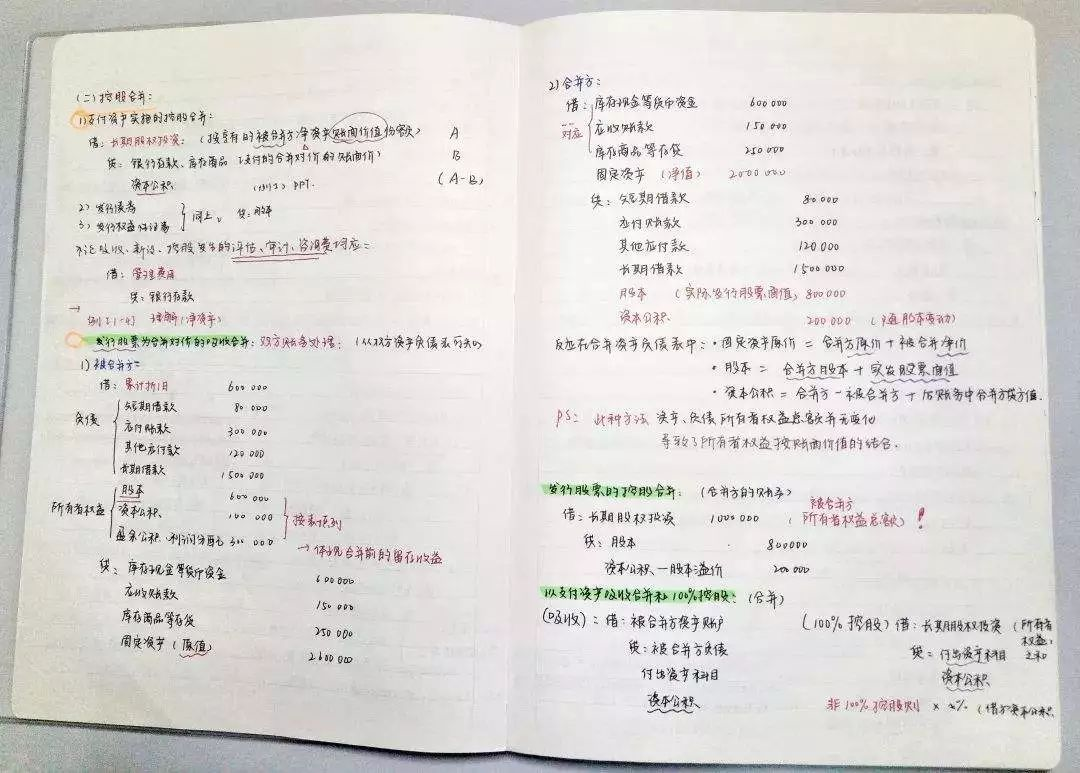 (二)控股合并:
1)支付资产实施的控股合并:
借:长期股权投资:(按享有的被合并方净资产账面价值份额) A
贷:银行存款、库存商品(支付的合并对价的账面价) B
资本公积 (例13) PPT. (A-B)
2)发行债券
3)发行权益性证券 } 同上、贷:股本
不论吸收、新设、控股发生的评估、审计、咨询费均应:
借:管理费用
贷:银行存款
→例[1-4] 理解(净资产)
发行股票为合并对价的吸收合并:双方账务处理:(从双方资产负债表可知)
1)被合并方:
借:累计折旧 600 000
负债
短期借款 80 000
应付账款 300 000
其他应付款 120 000
长期借款 1500 000
所有者权益
股本 600 000
资本公积 100 000
盈余公积、利润分配 300 000
} 按表项列
→体现合并前的留存收益
贷:库存现金等货币资金 600 000
应收账款 150 000
库存商品等存货 250 000
固定资产(原值) 2600 000
2)合并方:
借:库存现金等货币资金 600 000
对应 应收账款 150 000
库存商品等存货 250 000
固定资产(净值) 2000 000
贷:短期借款 80 000
应付账款 300 000
其他应付款 120 000
长期借款 1500 000
股本 (实际发行股票面值) 800 000
资本公积 200 000 (随股本变动)
反应在合并资产负债表中:·固定资产原价 = 合并方原价 + 被合并净价
·股本 = 合并方股本 + 实发股票面值
·资本公积 = 合并方-被合并方 + 后账务中合并方贷方值.
PS: 此种方法 资产、负债所有者权益总额并无变化
导致了所有者权益按账面价值的结合.
发行股票的控股合并:(合并方的账务)
借:长期股权投资 1000 000 (被合并方所有者权益总额) !
贷:股本 800000
资本公积—股本溢价 200 000
以支付资产吸收合并和100%控股:(合并)
(吸收):借:被合并方资产账户
贷:被合并方负债
付出资产科目
资本公积
(100%控股)借:长期股权投资(所有者权益之和)
贷:付出资产科目
资本公积
非100%控股则 × x% (借方资本公积